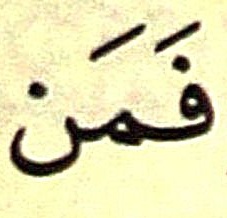 فَمَن